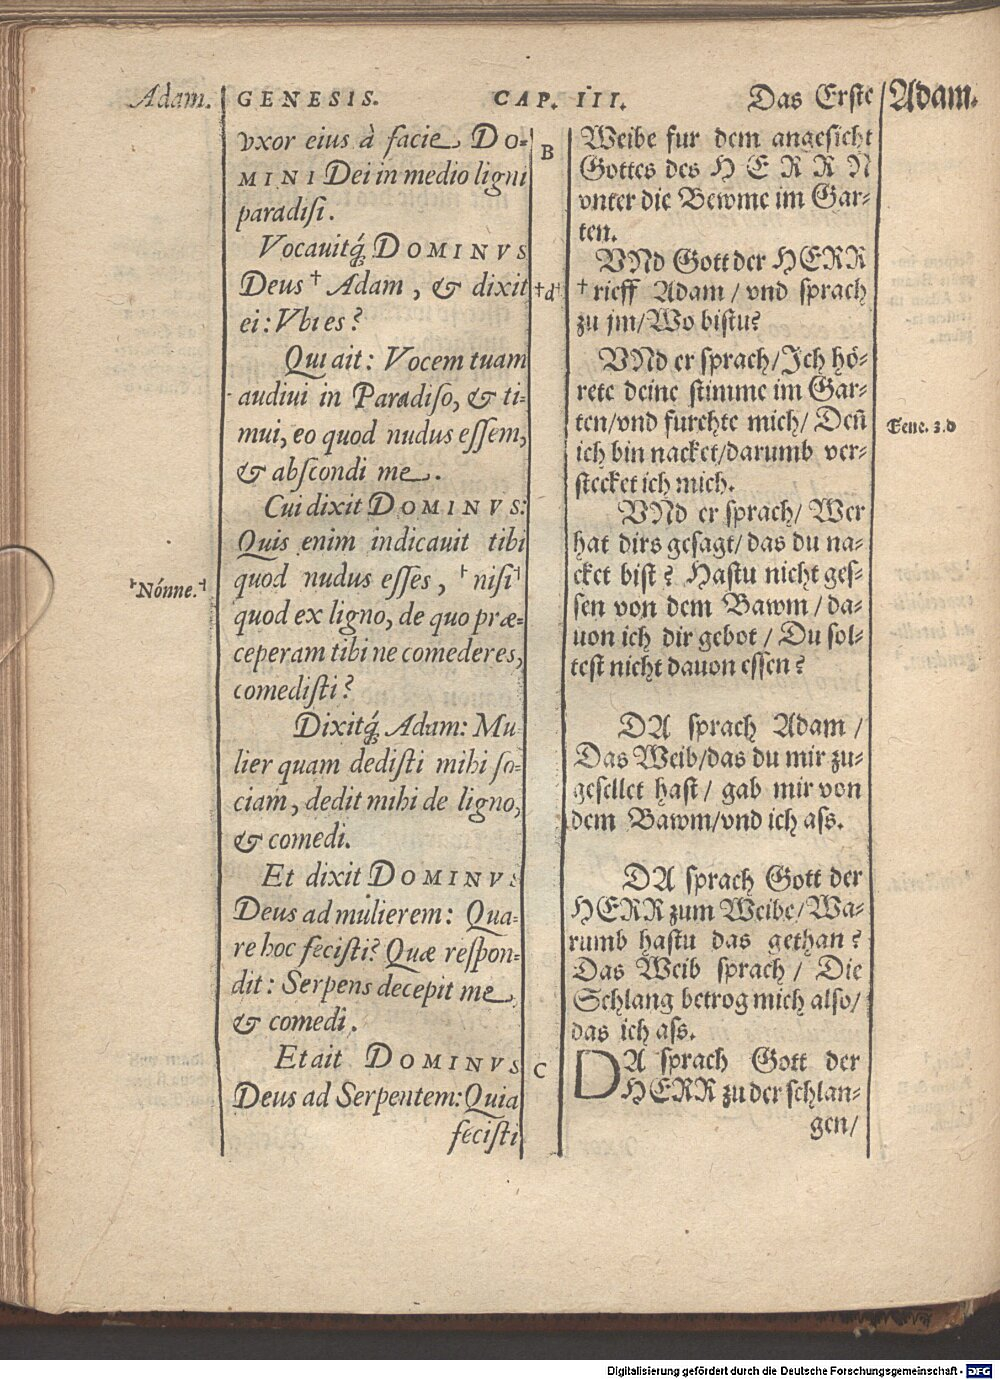 Adam. GENESIS. CAP. III. Das Erste Adam.
vxor eius à facie DO-
MINI Dei in medio ligni
paradisi.
Vocauitq́; DOMINVS
Deus † Adam, & dixit
ei: Vbi es?
Qui ait: Vocem tuam
audiui in Paradiso, & ti-
mui, eo quod nudus essem,
& abscondi me.
Cui dixit DOMINVS:
Quis enim indicauit tibi
quod nudus esses, ⸢nisi⸣
quod ex ligno, de quo præ-
ceperam tibi ne comederes,
comedisti?
Dixitq́; Adam: Mu-
lier quam dedisti mihi so-
ciam, dedit mihi de ligno,
& comedi.
Et dixit DOMINVS
Deus ad mulierem: Qua-
re hoc fecisti? Quæ respon-
dit: Serpens decepit me,
& comedi.
Et ait DOMINVS
Deus ad Serpentem: Quia
fecisti
⸢Nónne.⸣
B
†d⸣
C
Weibe fur dem angesicht
Gottes des HERRN
vnter die Bewme im Gar-
ten.
VNd Gott der HERR
† rieff Adam / vnd sprach
zu jm/Wo bistu?
VNd er sprach/Ich hö-
rete deine stimme im Gar-
ten/vnd furchte mich/ Deñ
ich bin nacket/darumb ver-
stecket ich mich.
VNd er sprach/ Wer
hat dirs gesagt/ das du na-
cket bist? Hastu nicht ges-
sen von dem Bawm / da-
uon ich dir gebot / Du sol-
test nicht dauon essen?
DA sprach Adam /
Das Weib/das du mir zu-
gesellet hast / gab mir von
dem Bawm/vnd ich ass.
DA sprach Gott der
HERR zum Weibe/Wa-
rumb hastu das gethan?
Das Weib sprach / Die
Schlang betrog mich also/
das ich ass.
DA sprach Gott der
HERR zu der schlan-
gen/
3.d
Digitalisierung gefördert durch die Deutsche Forschungsgemeinschaft - DFG